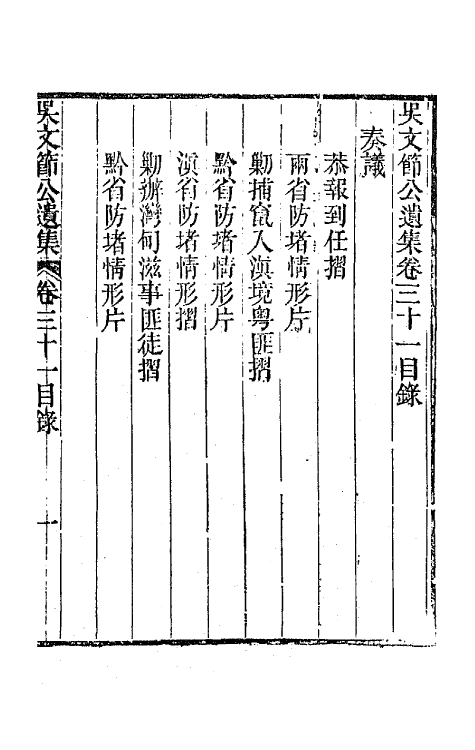 吳文節公遺集卷三十一目錄
奏議
恭報到任摺
兩省防堵情形片
勦捕竄入滇境粵匪摺
黔省防堵情形片
滇省防堵情形摺
勦辦灣甸滋事匪徒摺
黔省防堵情形片
吳文節公遺集 卷三十一目錄 一